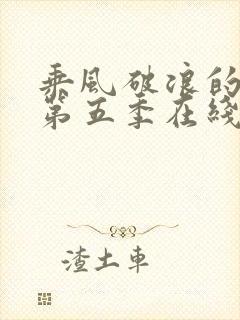 乘風破浪的
第五季在綫
渣土車